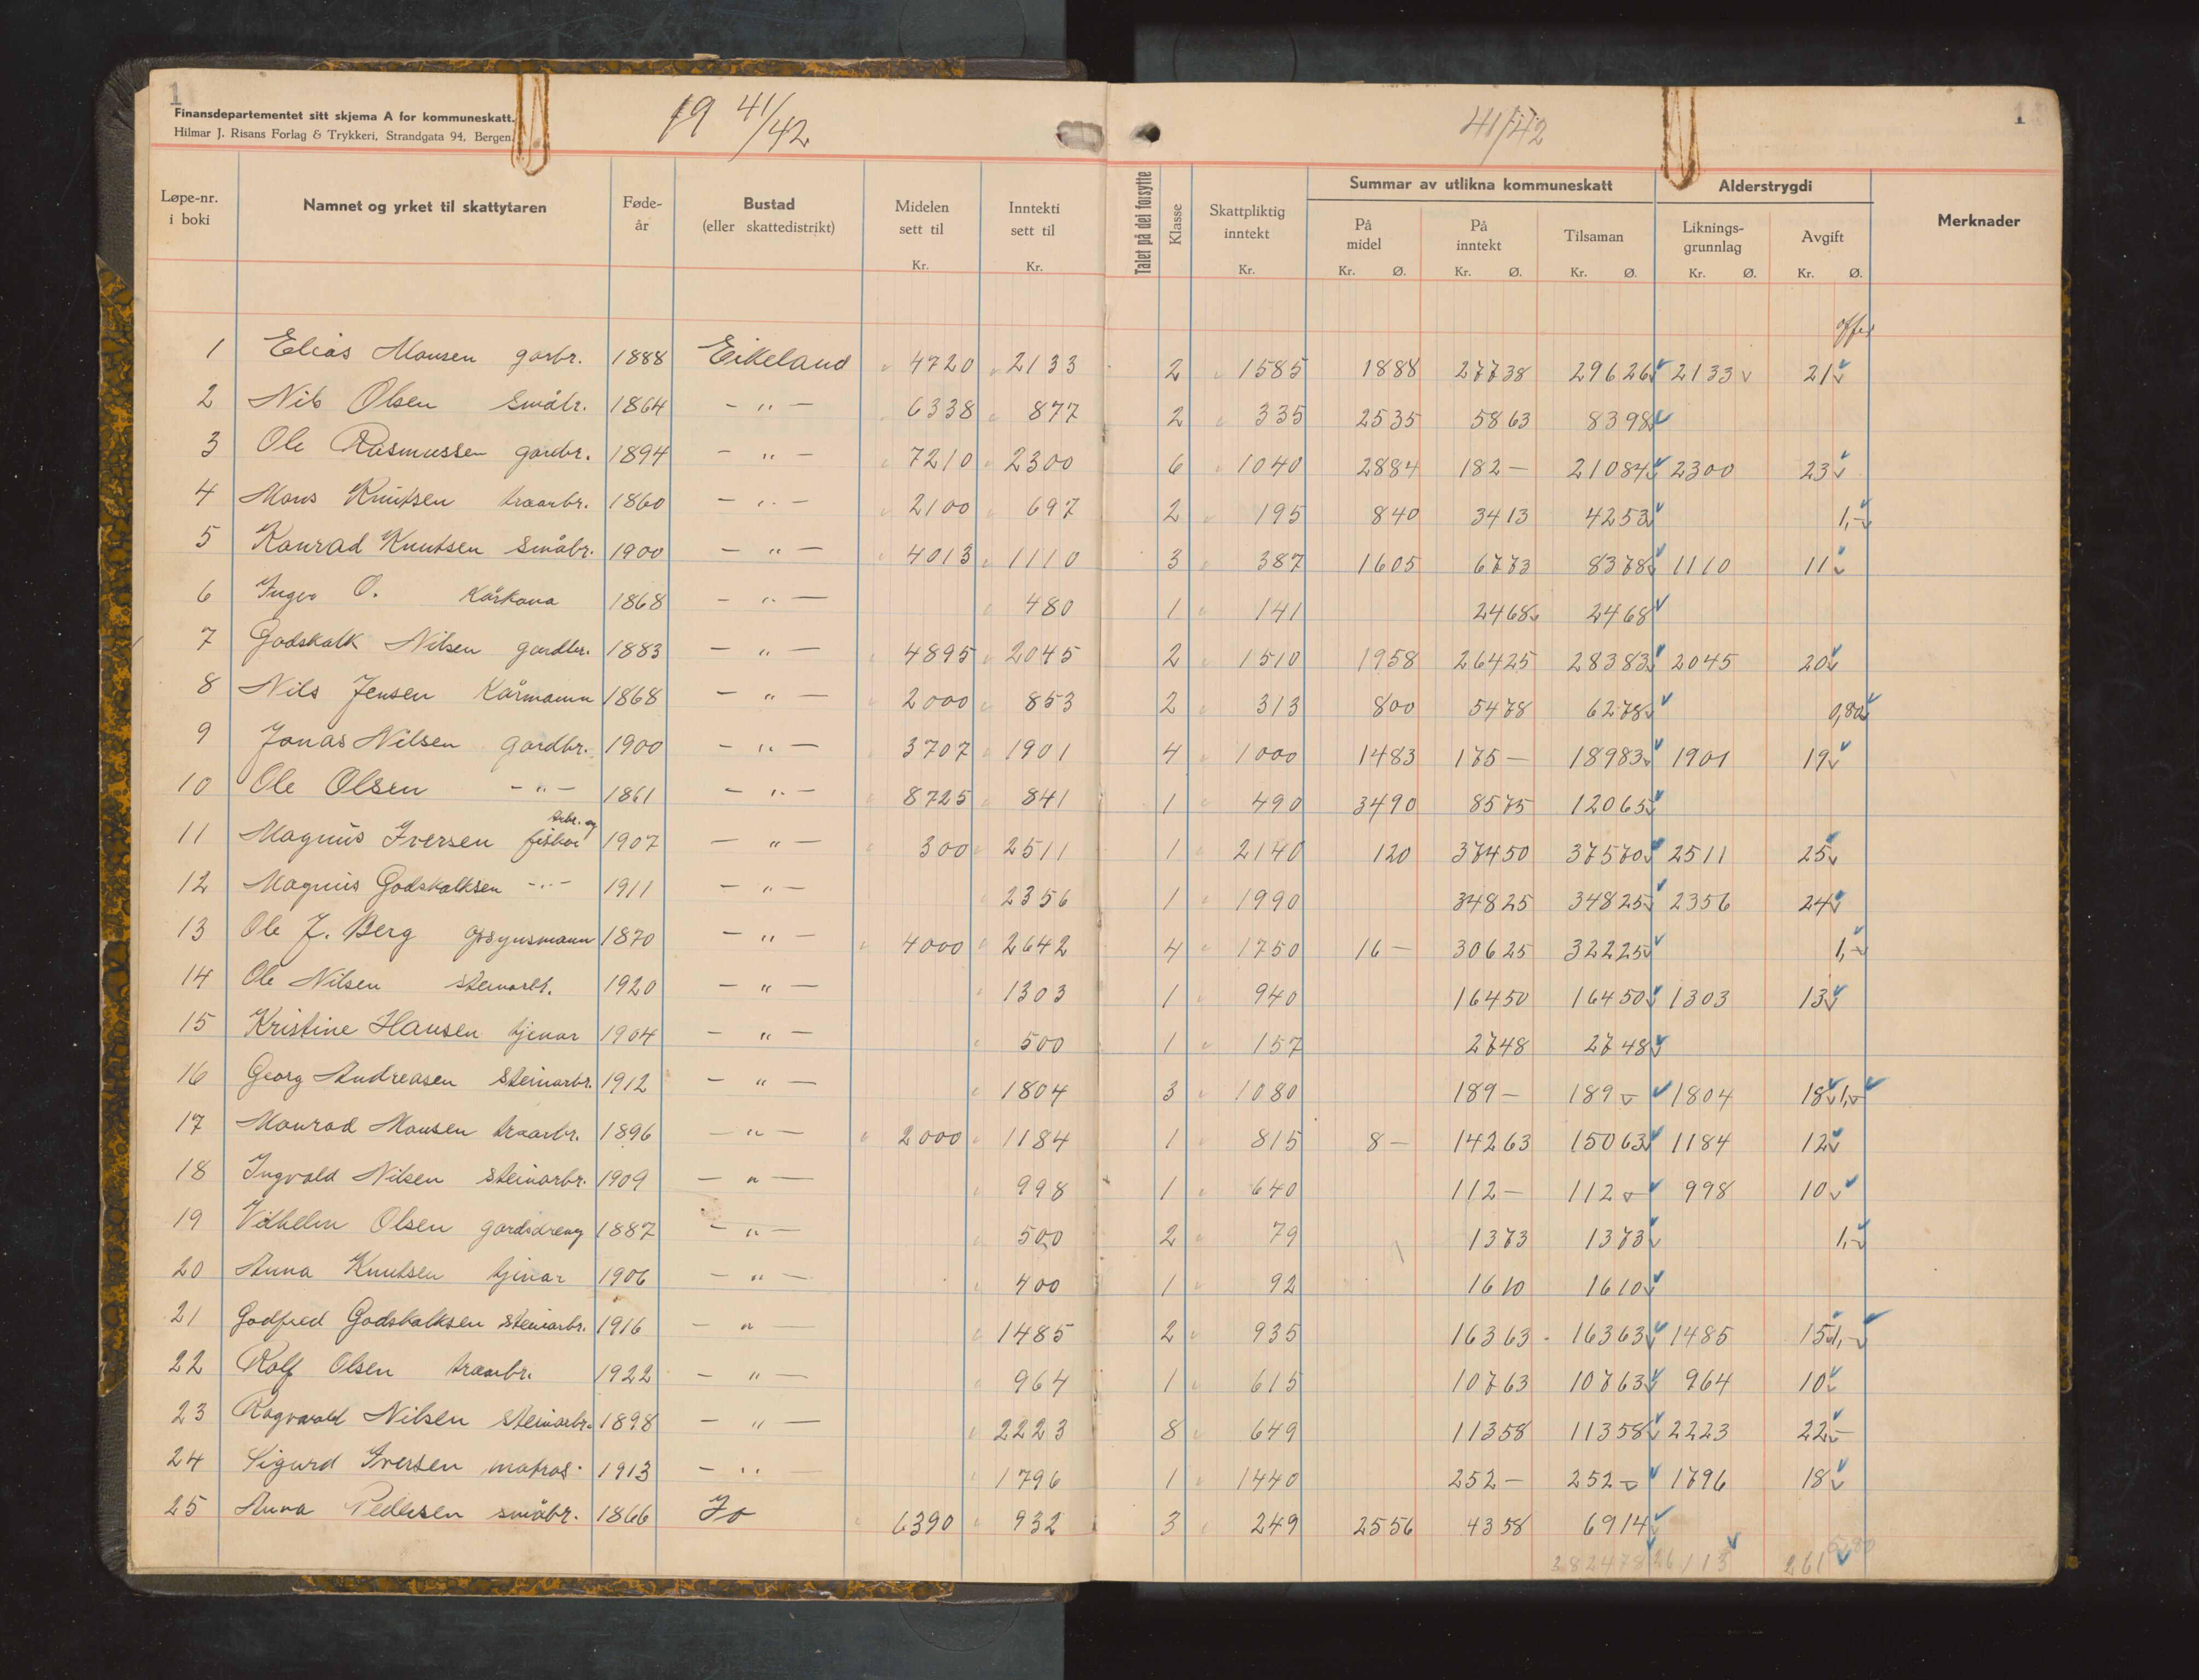 1
Finansdepartementet sitt skjema A for kommuneskatt.
Hilmar J. Risans Forlag & Trykkeri, Strandgata 94, Bergen.
19 41/42
41/42
1
Løpe-nr. i boki | Namnet og yrket til skattytaren | Føde-år | Bustad (eller skattedistrikt) | Midelen sett til Kr. | Inntekti sett til Kr. | Talet på dei forsytte | Klasse | Skattpliktig inntekt Kr. | Summar av utlikna kommuneskatt | På midel Kr. Ø. | På inntekt Kr. Ø. | Tilsaman Kr. Ø. | Alderstrygdi | Liknings-grunnlag Kr. Ø. | Avgift Kr. Ø. | Merknader
1 Elias Monsen garbr. 1888 Eikeland 4720 2133 2 1585 1888 27738 29626 2133 21
2 Nils Olsen småbr. 1864 - " - 6338 877 2 335 2535 5863 8398
3 Ole Rasmussen gardbr. 1894 - " - 7210 2300 6 1040 2884 182 - 21084 2300 23
4 Mons Knutsen traarbr. 1860 - " - 2100 697 2 195 840 3413 4253 1,-
5 Konrad Knutsen småbr. 1900 - " - 4013 1110 3 387 1605 6773 8378 1110 11
6 Inger O. Kårkona 1868 - " - 480 1 141 2468 2468
7 Godskalk Nilsen gardbr. 1883 - " - 4895 2045 2 1510 1958 26425 28383 2045 20
8 Nils Jensen Kårmann 1868 - " - 2000 853 2 313 800 5478 6278 0,80
9 Jonas Nilsen gardbr. 1900 - " - 3707 1901 4 1000 1483 175 - 18983 1901 19
10 Ole Olsen - " - 1861 - " - 8725 841 1 490 3490 8575 12065
11 Magnus Iversen arbr. og fiskar 1907 - " - 300 2511 1 2140 120 37450 37570 2511 25
12 Magnus Godskalksen - " - 1911 - " - 2356 1 1990 34825 34825 2356 24
13 Ole J. Berg opsynsmann 1870 - " - 4000 2642 4 1750 16 - 30625 32225 1,-
14 Ole Nilsen steinarb. 1920 - " - 1303 1 940 16450 16450 1303 13
15 Kristine Hansen tjenar 1904 - " - 500 1 157 2748 2748
16 Georg Andreasen steinarbr. 1912 - " - 1804 3 1080 189 - 189 - 1804 18 1,-
17 Monrad Monsen traarbr. 1896 - " - 2000 1184 1 815 8 - 14263 15063 1184 12
18 Ingvald Nilsen steinarbr. 1909 - " - 998 1 640 112 - 112 - 998 10
19 Vilhelm Olsen gardsdreng 1887 - " - 500 2 79 1373 1373 1,-
20 Anna Knutsen tjenar 1906 - " - 400 1 92 1610 1610
21 Godfred Godskalksen steinarbr. 1916 - " - 1485 2 935 16363 - 16363 1485 15 1,-
22 Rolf Olsen traarbr. 1922 - " - 964 1 615 10763 10763 964 10
23 Ragvald Nilsen steinarbr. 1898 - " - 2223 8 649 11358 11358 2223 22 -
24 Sigurd Iversen matros 1913 - " - 1796 1 1440 252 - 252 - 1796 18
25 Anna Pedersen småbr. 1866 Jo 6390 932 3 249 2556 4358 6914
382478 26113 261